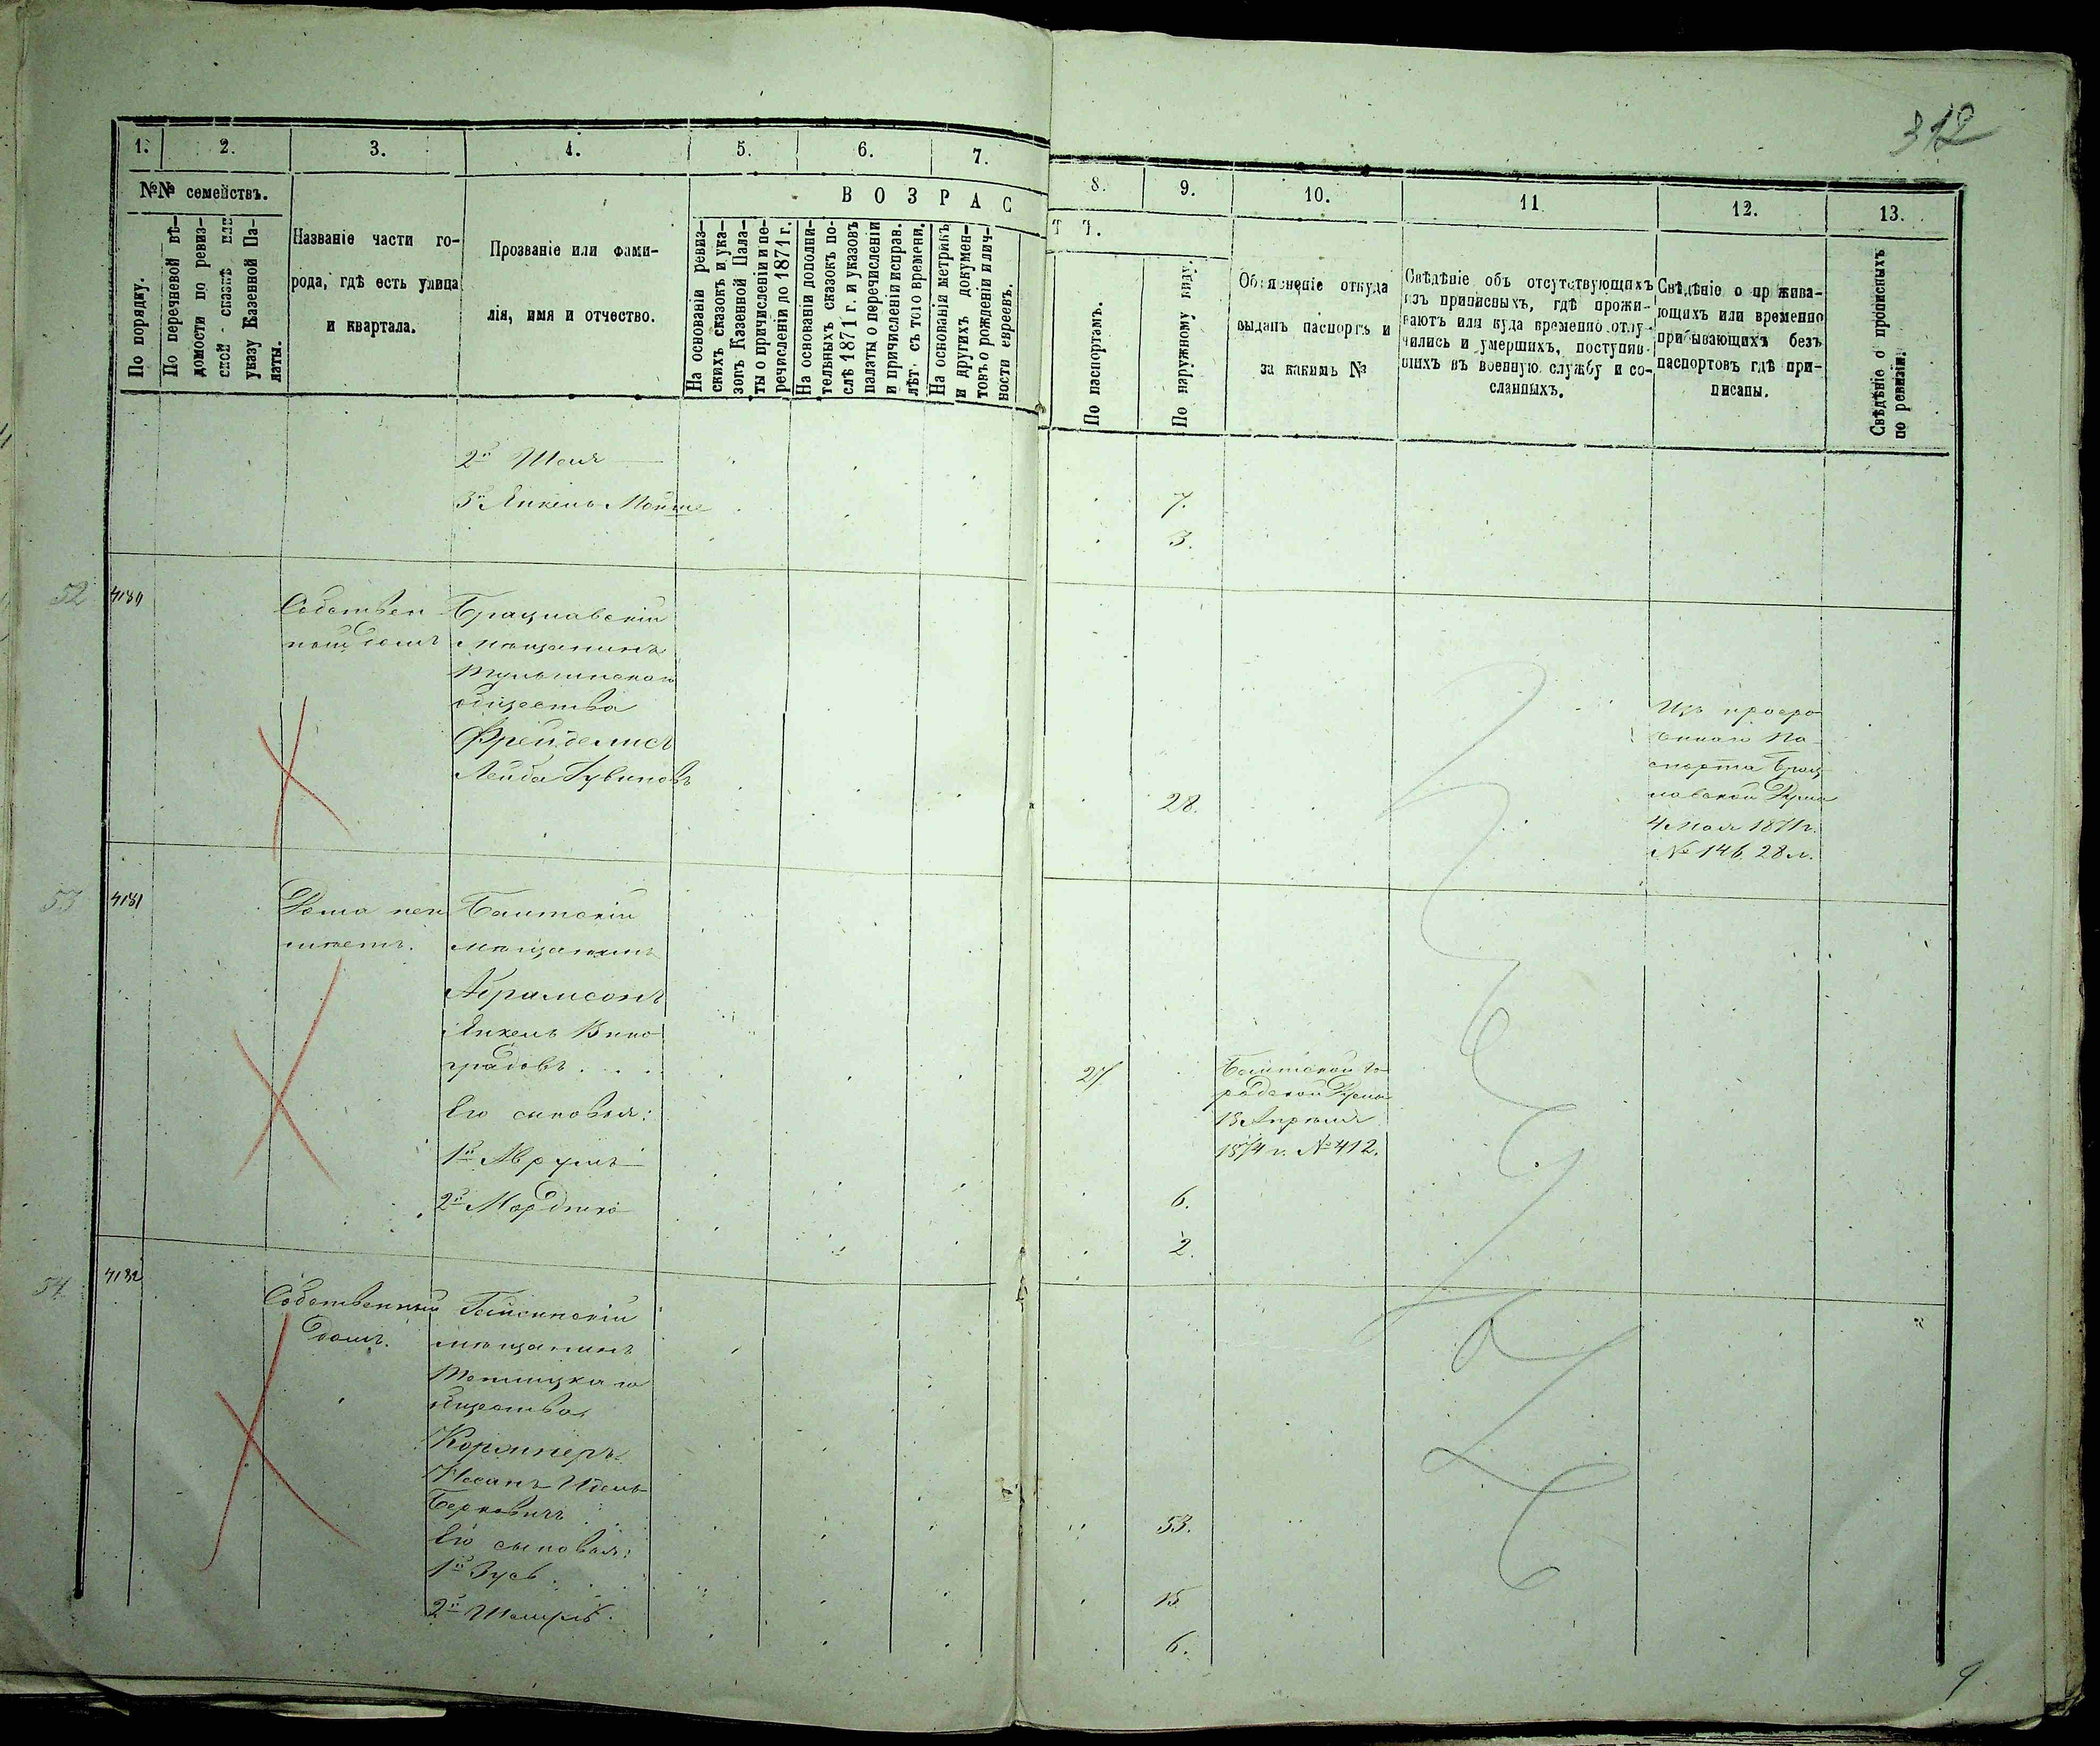 312
1. 2. 3. 4. 5. 6. 7. 8. 9. 10. 11 12. 13.
№№ семействъ.
По порядку.
По перечневой вѣ-
домости по ревиз-
ской сказкѣ или
указу Казенной Па-
латы.
Названіе части го-
рода, гдѣ есть улица
и квартала.
Прозваніе или фами-
лія, имя и отчество.
ВОЗРАСТ Т.
На основаніи ревиз-
скихъ сказокъ и ука-
зовъ Казенной Пала-
ты о причисленіи и пе-
речисленіи до 1871 г.
На основаніи дополни-
тельныхъ сказокъ по-
слѣ 1871 г. и указовъ
палаты о перечисленіи
и причисленіи исправ.
лѣт. съ того времени.
На основаніи метрикъ
и другихъ докумен-
товъ о рожденіи и лич-
ности евреевъ.
По паспортамъ.
По наружному виду.
Объясненіе откуда
выданъ паспортъ и
за какимъ №
Свѣдѣніе объ отсутствующихъ
изъ приписныхъ, гдѣ прожи-
ваютъ или куда временно отлу-
чились и умершихъ, поступив-
шихъ въ военную службу и со-
сланныхъ.
Свѣдѣніе о прожива-
ющихъ или временно
прибывающихъ безъ
паспортовъ гдѣ при-
писаны.
Свѣдѣніе о прописныхъ
по ревизіи.
2й Шая
7.
3й Янкель Мойше
3.
52 4180
Собствен
ный домъ
Брацлавскій
мѣщанинъ
Тульчинскаго
общества
Фрейделисъ
Лейба Рувиновъ
28.
Изъ просро
ченнаго Па
спорта Брац
лавской Думы
4 Мая 1871 г.
№ 146, 28 л.
53 4181
Дома неи
мѣетъ.
Балтскій
мѣщанинъ
Абрамсонъ
Янкель Вино
градовъ
27
Балтской го
родской Думы
13 Апрѣля
1874 г. № 412.
Его сыновья:
1й Аврумъ
6.
2й Мордко
2.
54 4182
Собственный
домъ.
Гайсинскій
мѣщанинъ
Теплицкаго
общества
Иделъ
Берковичъ
53.
Его сыновья:
1й Зусь
15
2й
6.
9